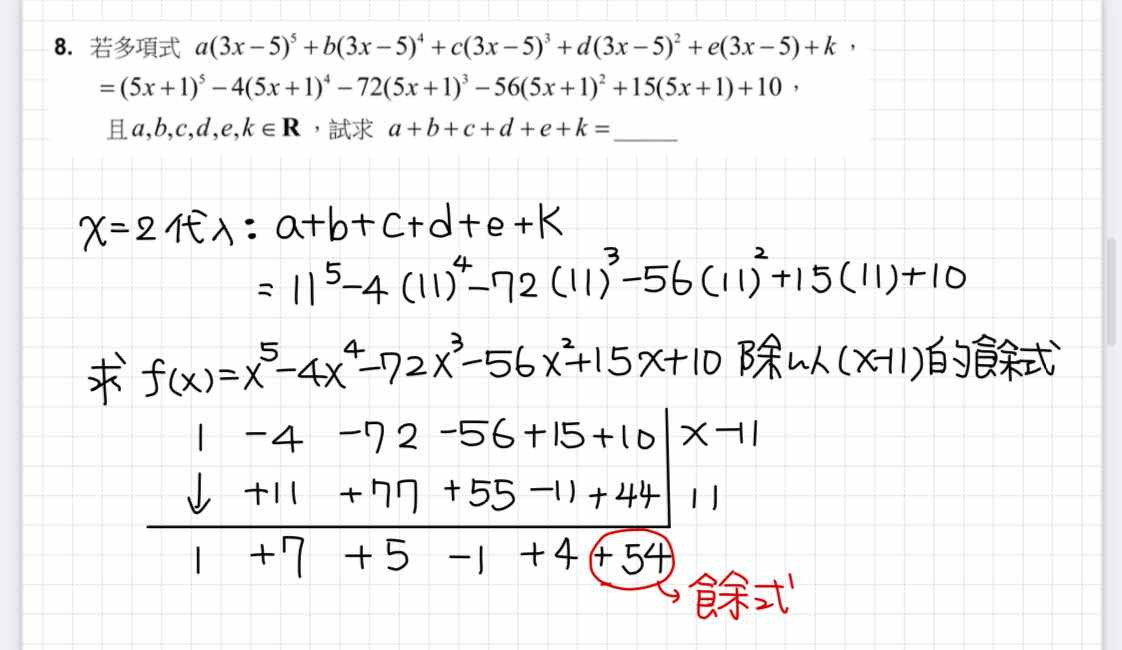 8. 若多項式 a(3x−5)⁵+b(3x−5)⁴+c(3x−5)³+d(3x−5)²+e(3x−5)+k，
=(5x+1)⁵−4(5x+1)⁴−72(5x+1)³−56(5x+1)²+15(5x+1)+10，
且a,b,c,d,e,k∈R，試求 a+b+c+d+e+k=_____
x=2代入：a+b+c+d+e+k
=11⁵−4(11)⁴−72(11)³−56(11)²+15(11)+10
求f(x)=x⁵−4x⁴−72x³−56x²+15x+10 除以(x−11)的餘式
1 −4 −72 −56 +15 +10 | x−11
↓ +11 +77 +55 −11 +44 | 11
1 +7 +5 −1 +4 +54
→餘式